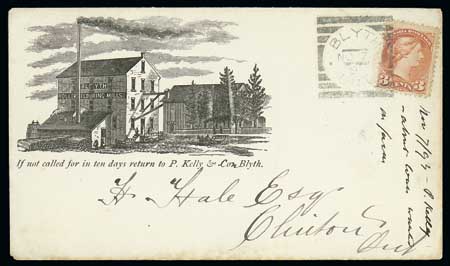 BLYTH
FLOURING MILLS
If not called for in ten days return to P. Kelly & Co., Blyth.
BLYTH
3 CENTS 3
H. Hale Esq
Clinton
Ont
Nov 7/93 - P. Kelly
- about loan wanted
on farm